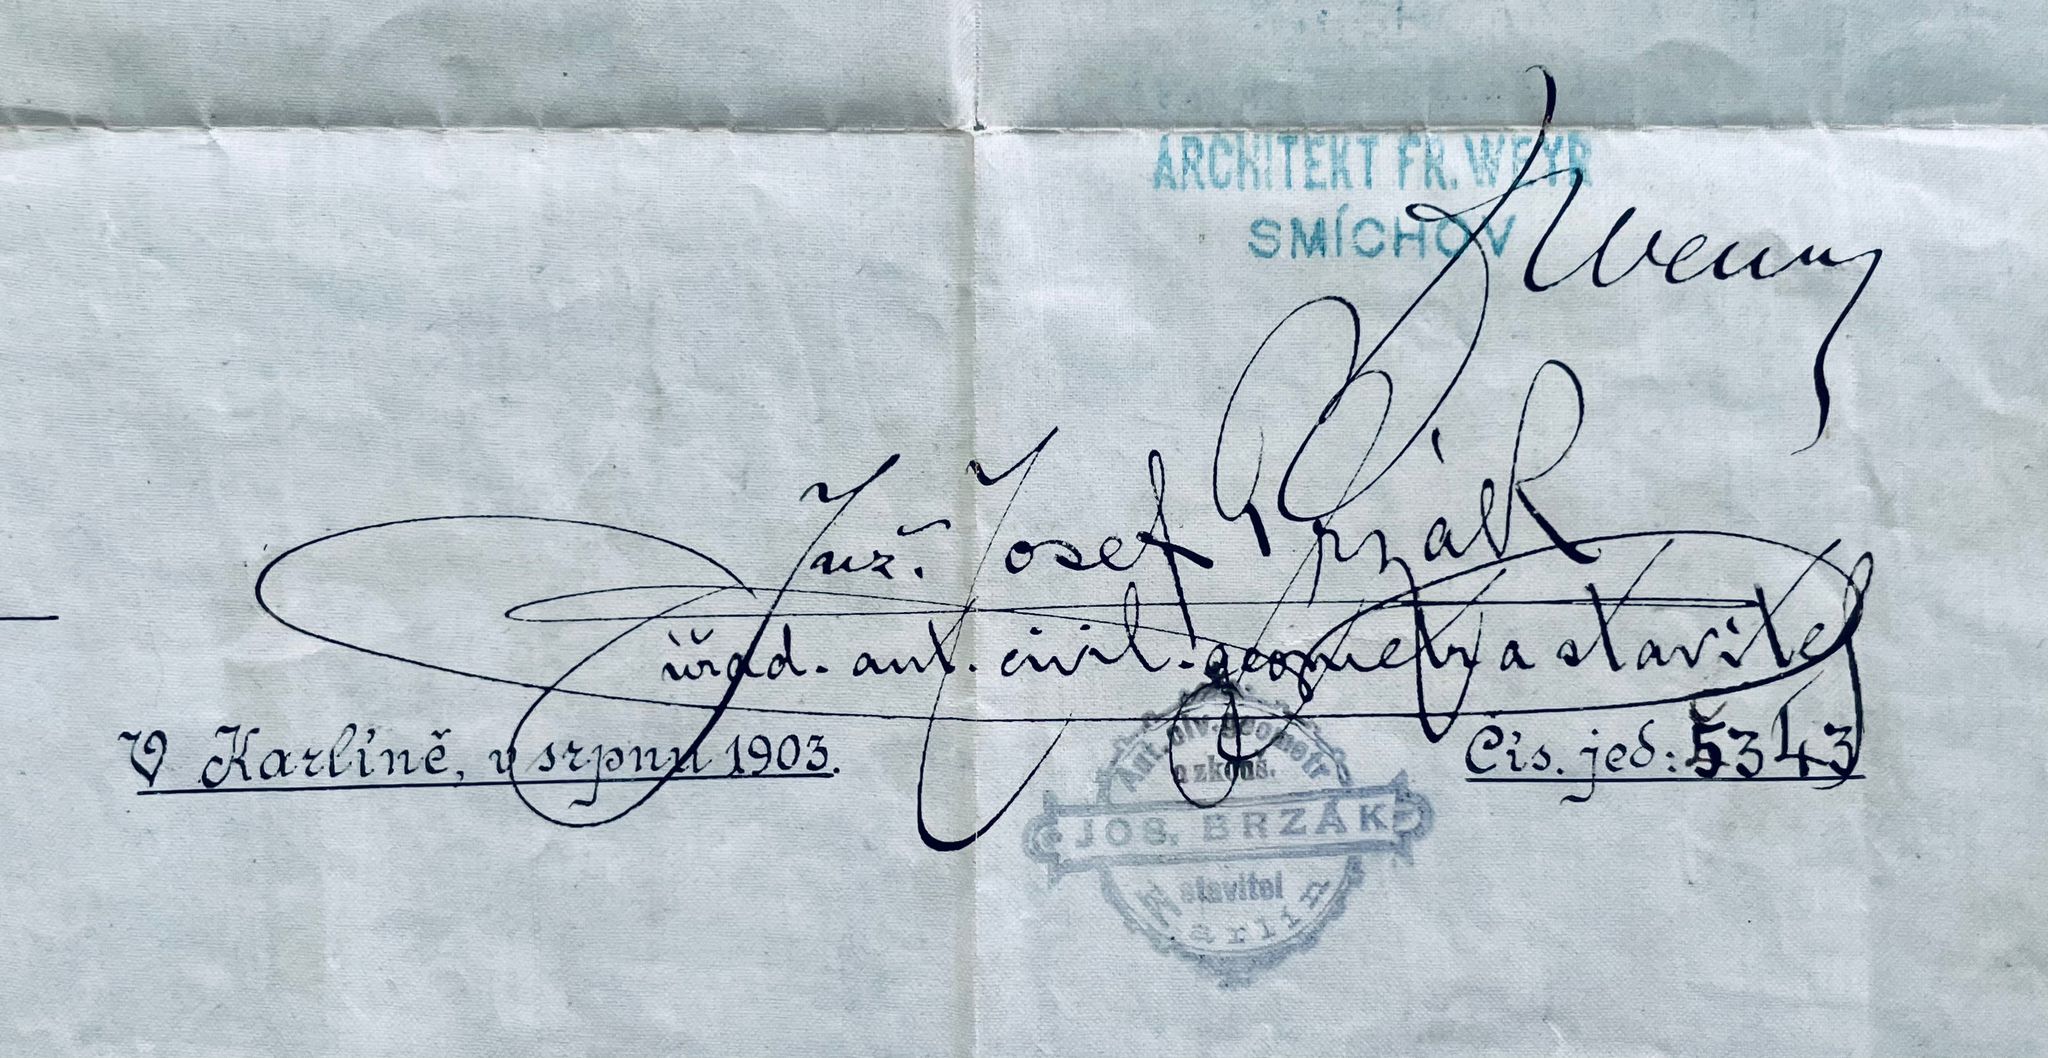 ARCHITEKT FR. WEYR
SMÍCHOV
Inž. Josef Brzák
úřad. aut. civil. geometr a stavitel
V Karlíně, v srpnu 1903.
Čís. jed: 5343
Aut. civ. geometr
a zkouš.
JOS. BRZÁK
stavitel
Karlín